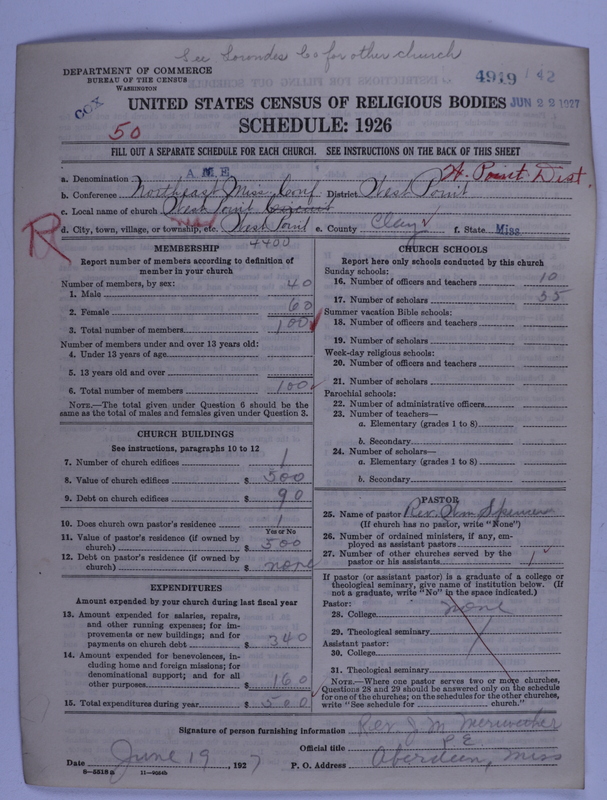 See Lowndes Co for other church
DEPARTMENT OF COMMERCE
BUREAU OF THE CENSUS
WASHINGTON
4919 142
COX
UNITED STATES CENSUS OF RELIGIOUS BODIES JUN 22 1927
50
SCHEDULE: 1926
FILL OUT A SEPARATE SCHEDULE FOR EACH CHURCH. SEE INSTRUCTIONS ON THE BACK OF THIS SHEET
W. Point Dist.
a. Denomination A.M.E.
b. Conference Northeast Miss. Conf District West Point
c. Local name of church West Point Circuit
d. City, town, village, or township, etc. West Point e. County Clay f. State Miss
R
4400
MEMBERSHIP
Report number of members according to definition of
member in your church
Number of members, by sex:
1. Male 40
2. Female 60
3. Total number of members 100
Number of members under and over 13 years old:
4. Under 13 years of age
5. 13 years old and over
6. Total number of members 100
NOTE.—The total given under Question 6 should be the
same as the total of males and females given under Question 3.
CHURCH BUILDINGS
See instructions, paragraphs 10 to 12
7. Number of church edifices 1
8. Value of church edifices $ 500
9. Debt on church edifices $ 90
10. Does church own pastor's residence 1
Yes or No
11. Value of pastor's residence (if owned by
church) $ 500
12. Debt on pastor's residence (if owned by
church) $ none
EXPENDITURES
Amount expended by your church during last fiscal year
13. Amount expended for salaries, repairs,
and other running expenses; for im-
provements or new buildings; and for
payments on church debt $ 340
14. Amount expended for benevolences, in-
cluding home and foreign missions; for
denominational support; and for all
other purposes $ 160
15. Total expenditures during year $ 500
CHURCH SCHOOLS
Report here only schools conducted by this church
Sunday schools:
16. Number of officers and teachers 10
17. Number of scholars 35
Summer vacation Bible schools:
18. Number of officers and teachers
19. Number of scholars
Week-day religious schools:
20. Number of officers and teachers
21. Number of scholars
Parochial schools:
22. Number of administrative officers
23. Number of teachers—
a. Elementary (grades 1 to 8)
b. Secondary
24. Number of scholars—
a. Elementary (grades 1 to 8)
b. Secondary
PASTOR
25. Name of pastor Rev. Spencer
(If church has no pastor, write "None")
26. Number of ordained ministers, if any, em-
ployed as assistant pastors
27. Number of other churches served by the
pastor or his assistants 1
If pastor (or assistant pastor) is a graduate of a college or
theological seminary, give name of institution below. (If
not a graduate, write "No" in the space indicated.)
Pastor:
28. College none
29. Theological seminary
Assistant pastor:
30. College
31. Theological seminary
NOTE.—Where one pastor serves two or more churches,
Questions 28 and 29 should be answered only on the schedule
for one of the churches; on the schedules for the other churches,
write "See schedule for church."
Signature of person furnishing information Rev. J. M. Meriweather
Official title P.E.
Date June 19, 1927 P. O. Address Aberdeen, Miss
8—5518a 11—9554b